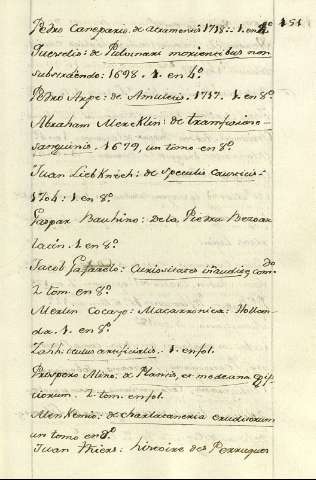 151
Pedro Caneparo. de atramentis 1718. 1. en 4º
Querelio: de Pulvinari morientibus non
subtrahendo: 1698. 1. en 4º.
Pedro Arpe: de Amuletis. 1717. 1. en 8º.
Abraham Mercklin: de transfusione
sanguinis. 1679, un tomo en 8º.
Juan Liebknech: de Speculis causticis:
1704: 1. en 8º.
Gaspar Bauhino: De la Piedra Bezoar
lacin. 1. en 8º.
Jacob Gafarelo: Curiositates
2. tom. en 8º.
Merlin Cocayo: Macarronica: Hollan-
da. 1. en 8º.
Zahh. oculus artificialis. 1. en fol.
Prospero Alino: de Plantis, et medecina
2. tom. en fol.
Menkenio: de charlataneria eruditorum
un tomo en 8º.
Juan Thiers: histoire des Perruques